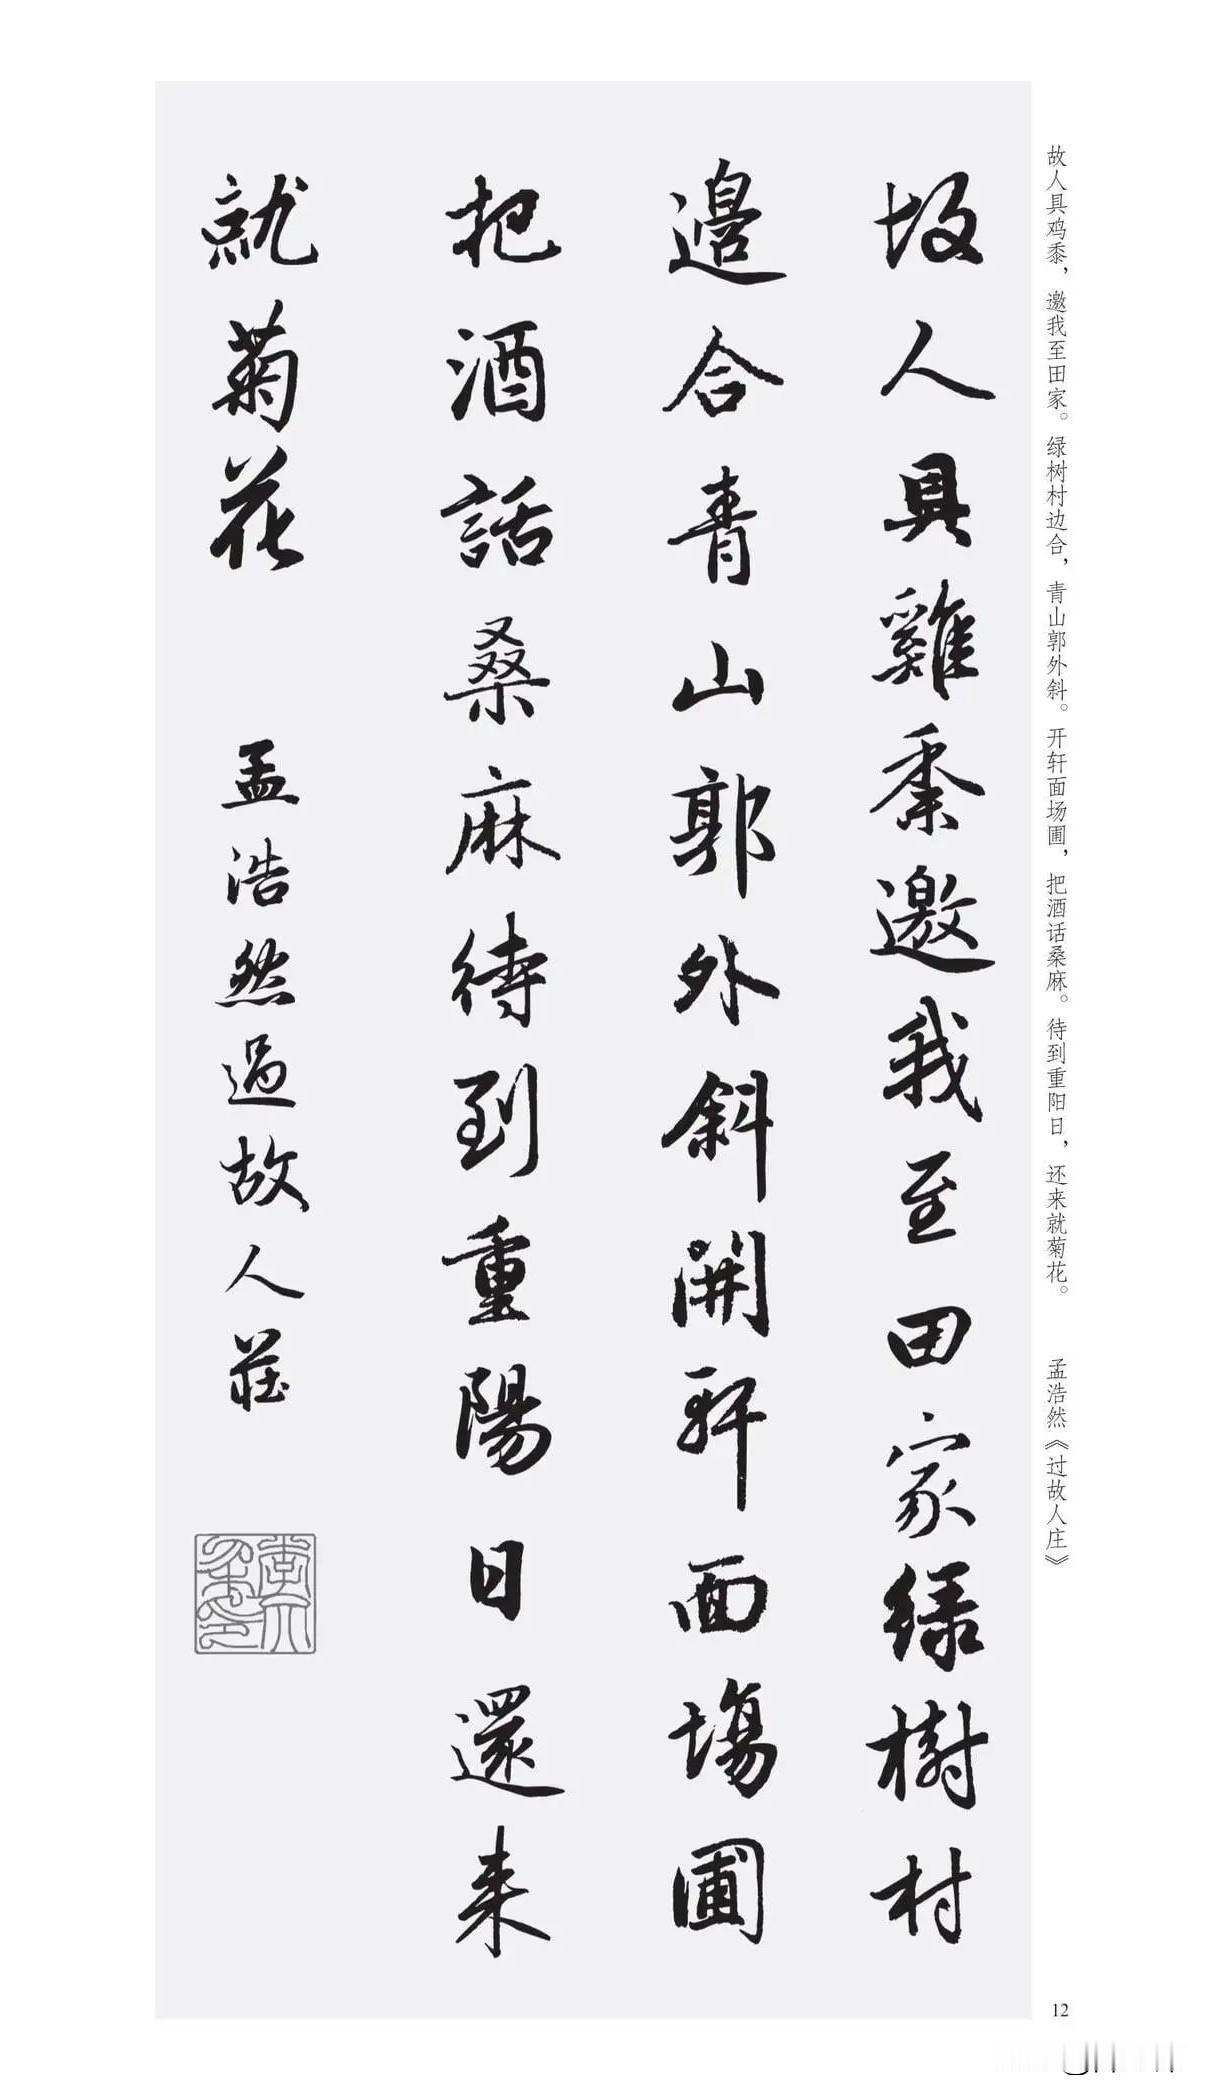 故人具鸡黍，邀我至田家。绿树村边合，青山郭外斜。开轩面场圃，把酒话桑麻。待到重阳日，还来就菊花。　孟浩然《过故人庄》
故人具雞黍邀我至田家绿樹村
邊合青山郭外斜開軒面場圃
把酒話桑麻待到重陽日還来
就菊花
孟浩然過故人莊
12